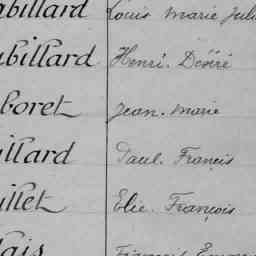 abillard Louis Marie Juli
abillard Henri. Désiré
boret Jean. Marie
illard Paul. Francis
illet Elie. François
lais